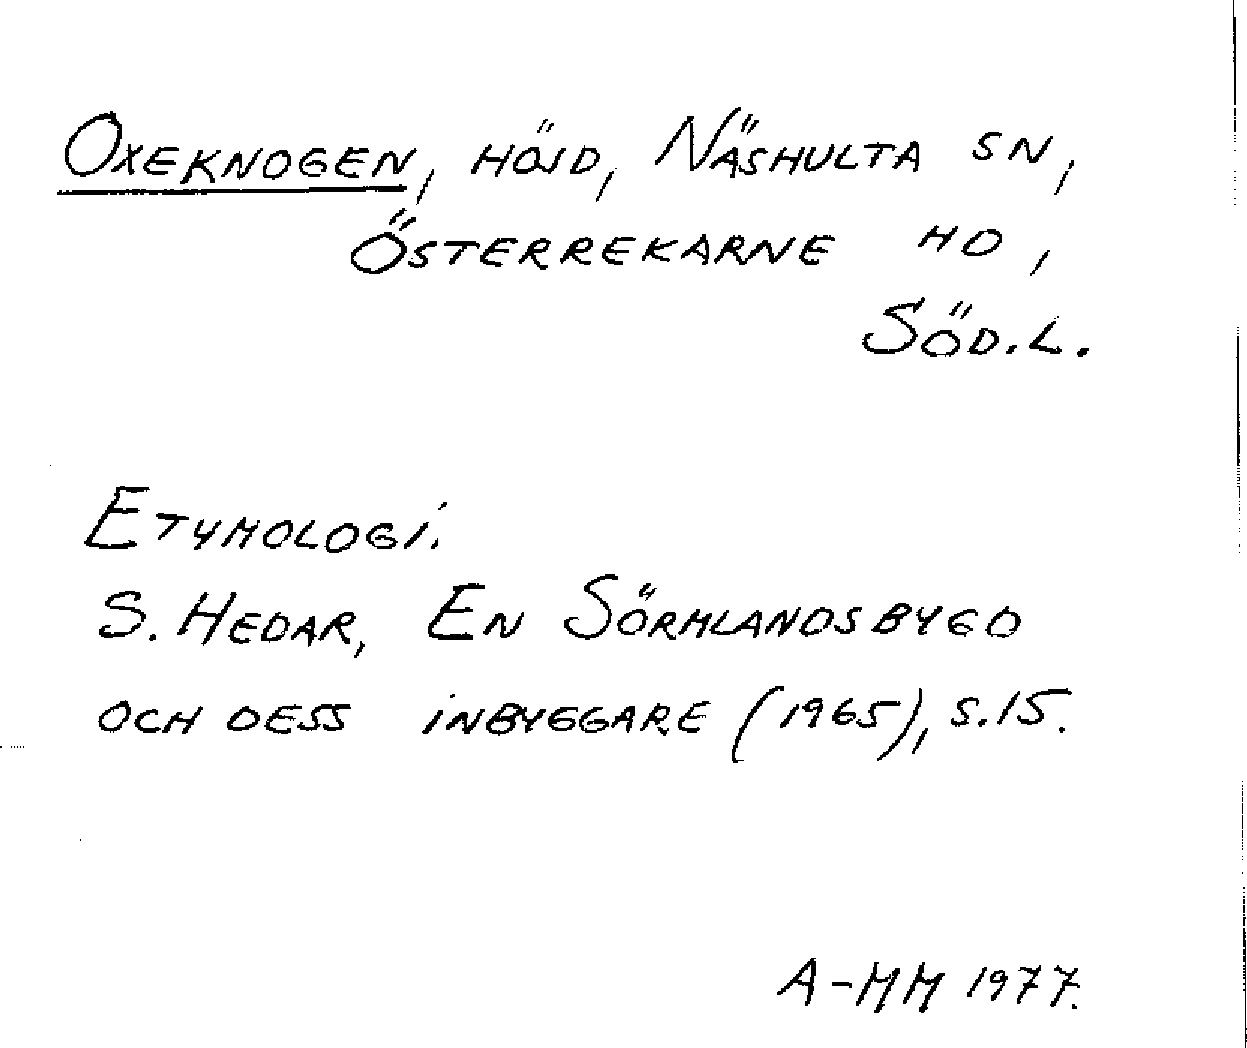 OXEKNOGEN, HÖJD, NÄSHULTA SN,
ÖSTERREKARNE HD,
SÖD.L.
ETYMOLOGI.
S. HEDAR, EN SÖRMLANDSBYGD
OCH DESS INBYGGARE (1965), S.15.
A-MM 1977.